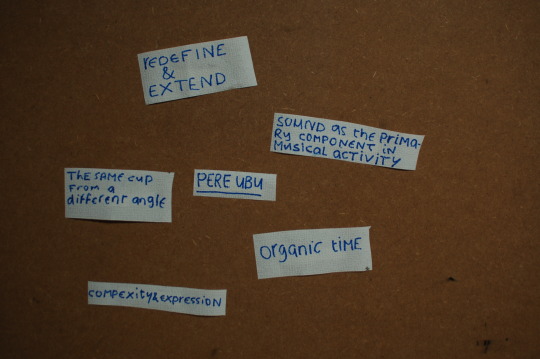 rEDEFINE
&
EXTEND
SOUND as the PrimA-
Ry COMPONENT IN
Musical activity
The SAME cup
From a
different angle
PERE UBU
Organic tiME
compexity&expression